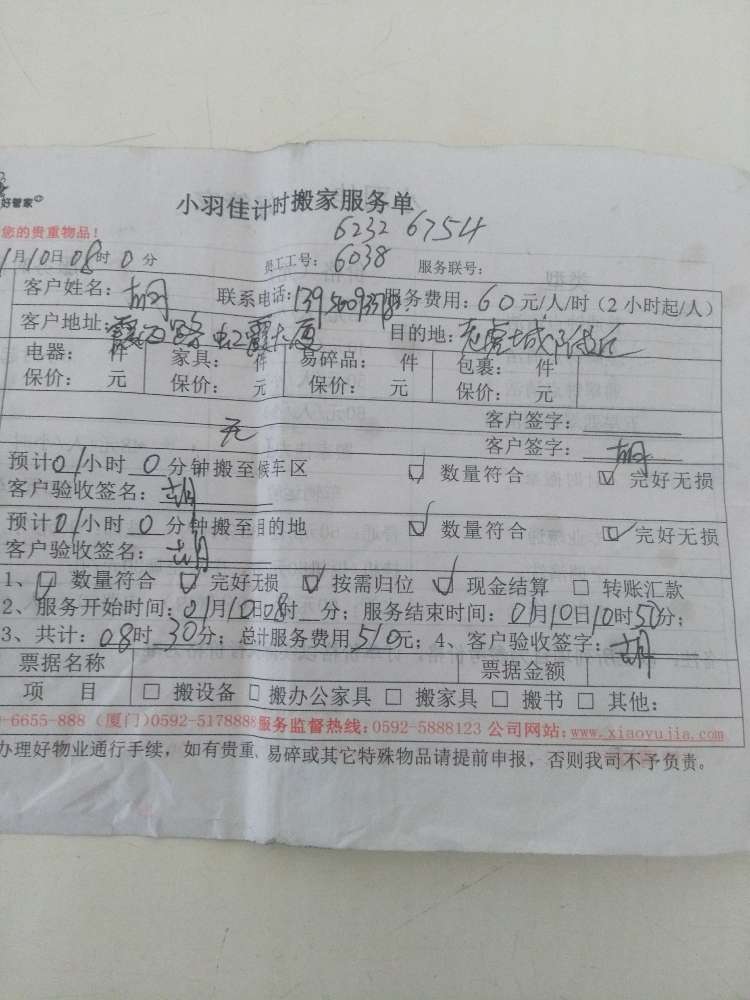 好管家
小羽佳计时搬家服务单
6232 6754
您的贵重物品!
1月10日08时0分 员工工号: 6038 服务联号:
客户姓名: 胡 联系电话: 服务费用: 60元/人/时 (2小时起/人)
客户地址: 霞西路虹霞大厦 目的地: 城附近
电器: 件 家具: 件 易碎品: 件 包裹: 件
保价: 元 保价: 元 保价: 元 保价: 元
元 客户签字:
客户签字: 胡
预计01小时0分钟搬至候车区 数量符合 完好无损
客户验收签名: 胡
预计01小时0分钟搬至目的地 数量符合 完好无损
客户验收签名: 胡
1、 数量符合 完好无损 按需归位 现金结算 转账汇款
2、服务开始时间: 01月10日08时 分; 服务结束时间: 01月10日10时50分;
3、共计: 08时30分; 总计服务费用510元; 4、客户验收签字: 胡
票据名称 票据金额
项 目 搬设备 搬办公家具 搬家具 搬书 其他:
-6655-888 (厦门)0592-5178888 服务监督热线: 0592-5888123 公司网站: www.xiaoyujia.com
办理好物业通行手续, 如有贵重、易碎或其它特殊物品请提前申报, 否则我司不予负责。